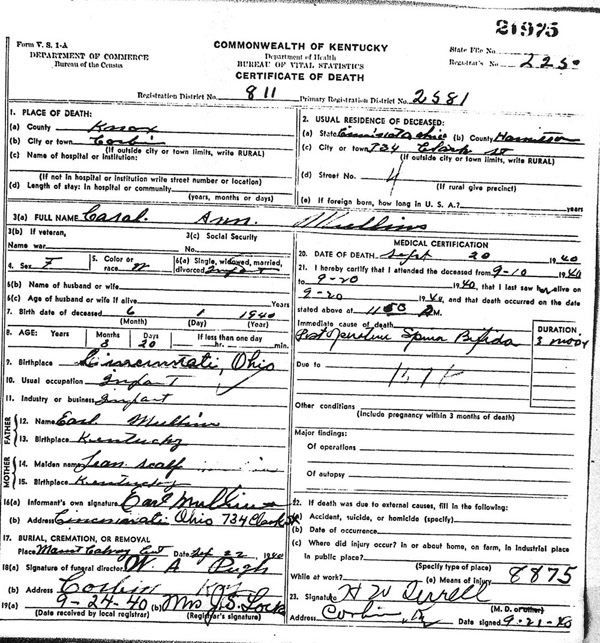 21975
Form V. S. 1-A
DEPARTMENT OF COMMERCE
Bureau of the Census
COMMONWEALTH OF KENTUCKY
Department of Health
BUREAU OF VITAL STATISTICS
CERTIFICATE OF DEATH
State File No.
Registrar's No. 225
Registration District No. 811 Primary Registration District No. 2581
1. PLACE OF DEATH:
(a) County Knox
(b) City or town Corbin
(If outside city or town limits, write RURAL)
(c) Name of hospital or institution:
(If not in hospital or institution write street number or location)
(d) Length of stay: In hospital or community
(years, months or days)
2. USUAL RESIDENCE OF DECEASED:
(a) State Cincinnati Ohio (b) County
(c) City or town 734 Clark St
(If outside city or town limits, write RURAL)
(d) Street No.
(If rural give precinct)
(e) If foreign born, how long in U. S. A.? years
3(a) FULL NAME Carol Ann Mullins
3(b) If veteran,
Name war
3(c) Social Security
No.
4. Sex F
5. Color or
race W
6(a) Single, widowed, married,
divorced Infant
6(b) Name of husband or wife
6(c) Age of husband or wife if alive Years
7. Birth date of deceased 6 1 1940
(Month) (Day) (Year)
8. AGE: Years Months Days If less than one day
3 20 hr. min.
9. Birthplace Cincinnati, Ohio
10. Usual occupation Infant
11. Industry or business Infant
FATHER
12. Name Earl Mullins
13. Birthplace Kentucky
MOTHER
14. Maiden name Jean Scalf
15. Birthplace Kentucky
16(a) Informant's own signature Earl Mullins
(b) Address Cincinnati Ohio 734 Clark St
17. BURIAL, CREMATION, OR REMOVAL
Place Date Sep 22, 1940
18(a) Signature of funeral director W. A. Pugh
(b) Address Corbin Ky
19(a) 9-24-40 (b) Mrs J. S. Lock
(Date received by local registrar) (Registrar's signature)
MEDICAL CERTIFICATION
20. DATE OF DEATH Sept 20 1940
21. I hereby certify that I attended the deceased from 9-10 1940
to 9-20 1940, that I last saw her alive on
9-20 1940, and that death occurred on the date
stated above at M.
Immediate cause of death
Post Operative Spina Bifida
DURATION
3 mo
Due to
Other conditions
(Include pregnancy within 3 months of death)
Major findings:
Of operations
Of autopsy
22. If death was due to external causes, fill in the following:
(a) Accident, suicide, or homicide (specify)
(b) Date of occurrence
(c) Where did injury occur? in or about home, on farm, in industrial place
in public place?
(Specify type of place)
While at work? (e) Means of injury 8875
23. Signature H W Terrell
(M. D. or other)
Address Corbin Ky Date signed 9-21-40